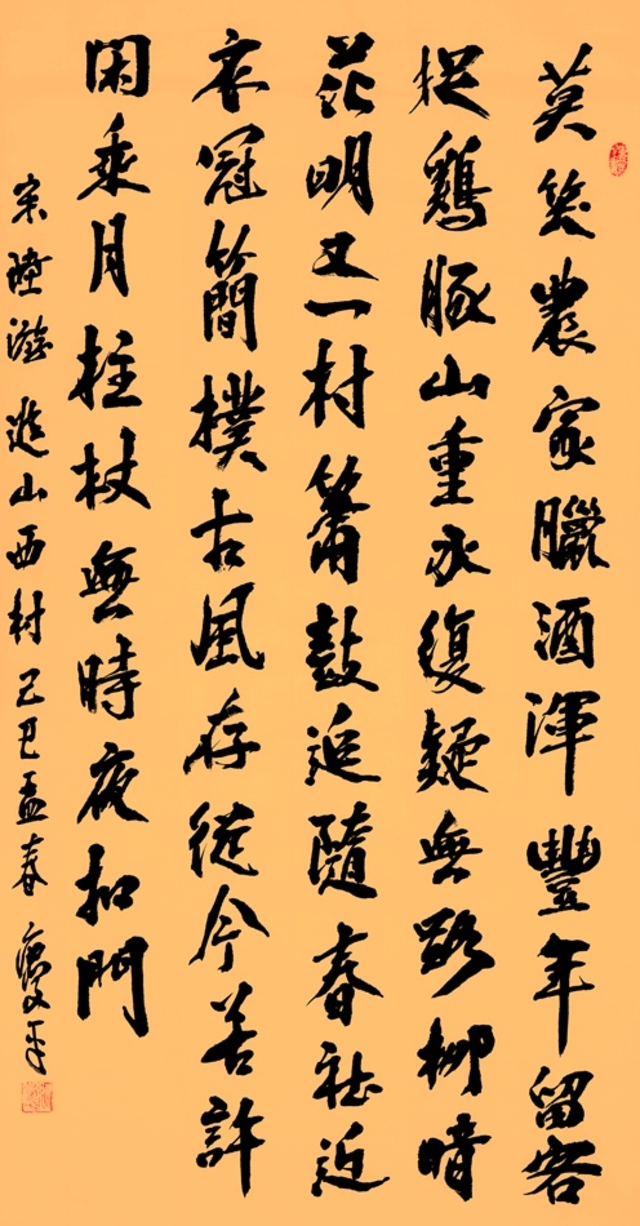 莫笑農家臘酒渾豐年留客
捉鷄豚山重水復疑無路柳暗
花明又一村簫鼓追隨春社近
衣冠簡樸古風存從今若許
閑乘月柱杖無時夜扣門
宋陸游遊山西村己巳孟春